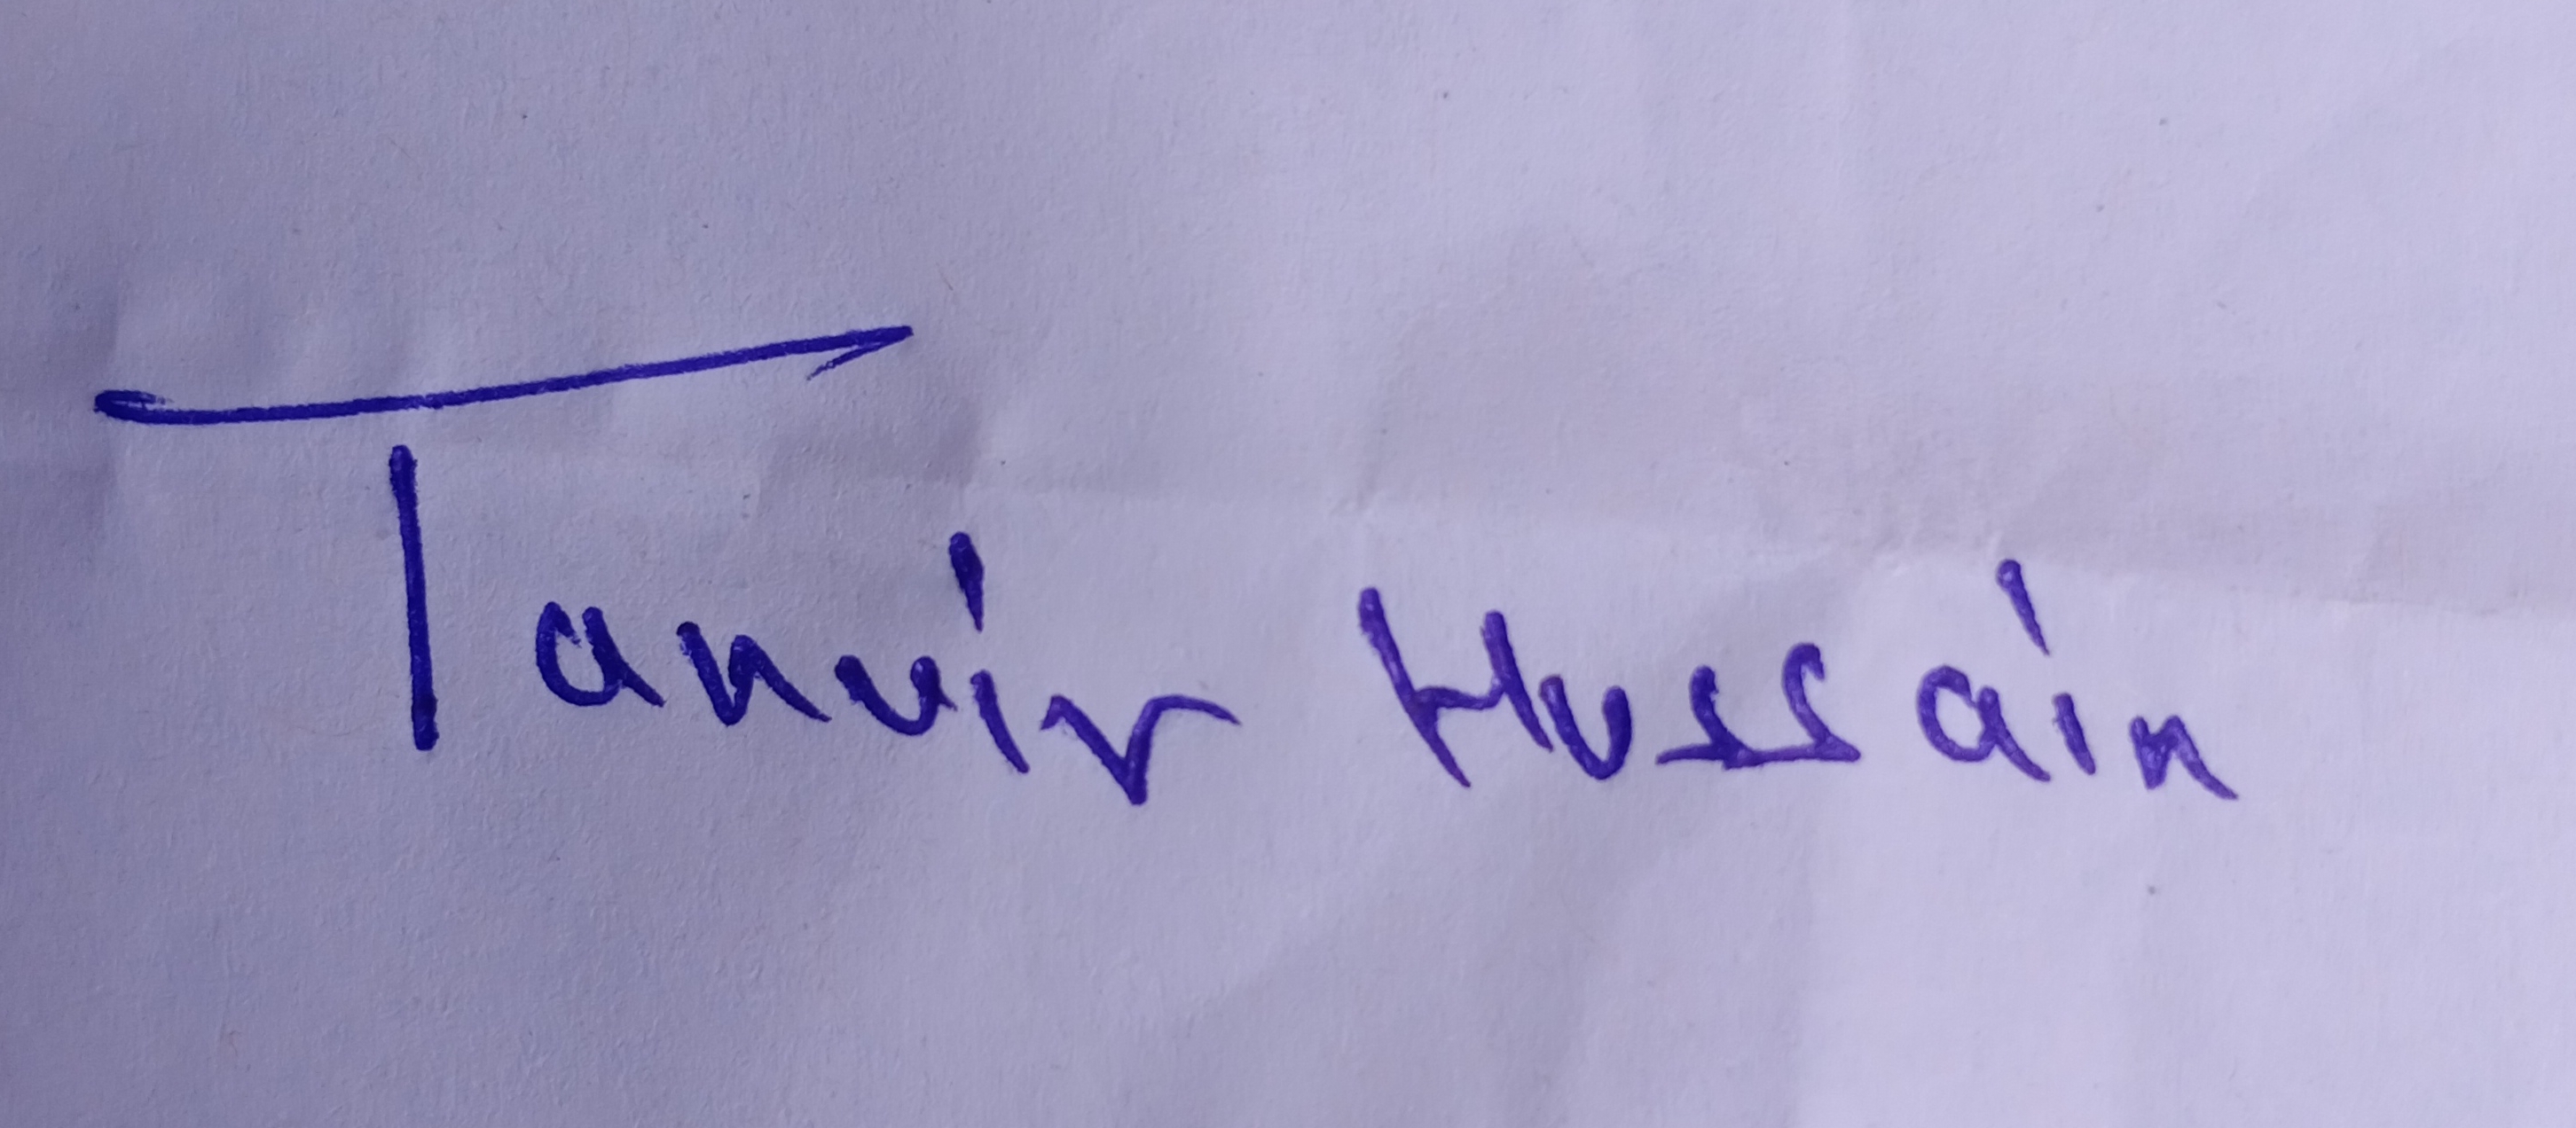 Tanvir Hussain